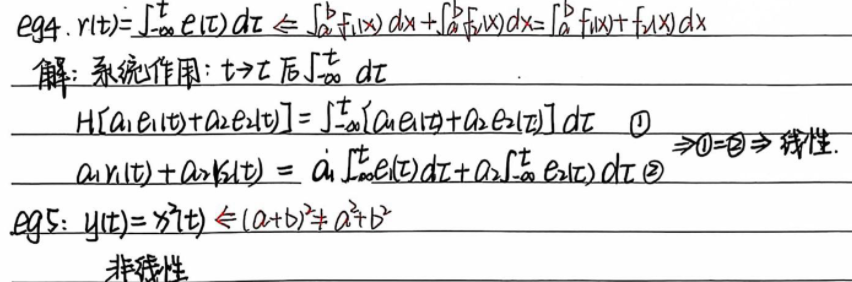 eg4. r(t)=∫_{-∞}^{t} e(τ)dτ ⇐ ∫_a^b f₁(x)dx+∫_a^b f₂(x)dx=∫_a^b f₁(x)+f₂(x)dx
解: 系统作用: t→τ 后∫_{-∞}^{t} dτ
H[a₁e₁(t)+a₂e₂(t)]=∫_{-∞}^{t}[a₁e₁(τ)+a₂e₂(τ)]dτ ①
⇒①=②⇒线性.
a₁r₁(t)+a₂r₂(t) = a₁∫_{-∞}^{t}e₁(τ)dτ+a₂∫_{-∞}^{t} e₂(τ)dτ ②
eg5: y(t)=x²(t) ⇐(a+b)²≠a²+b²
非线性